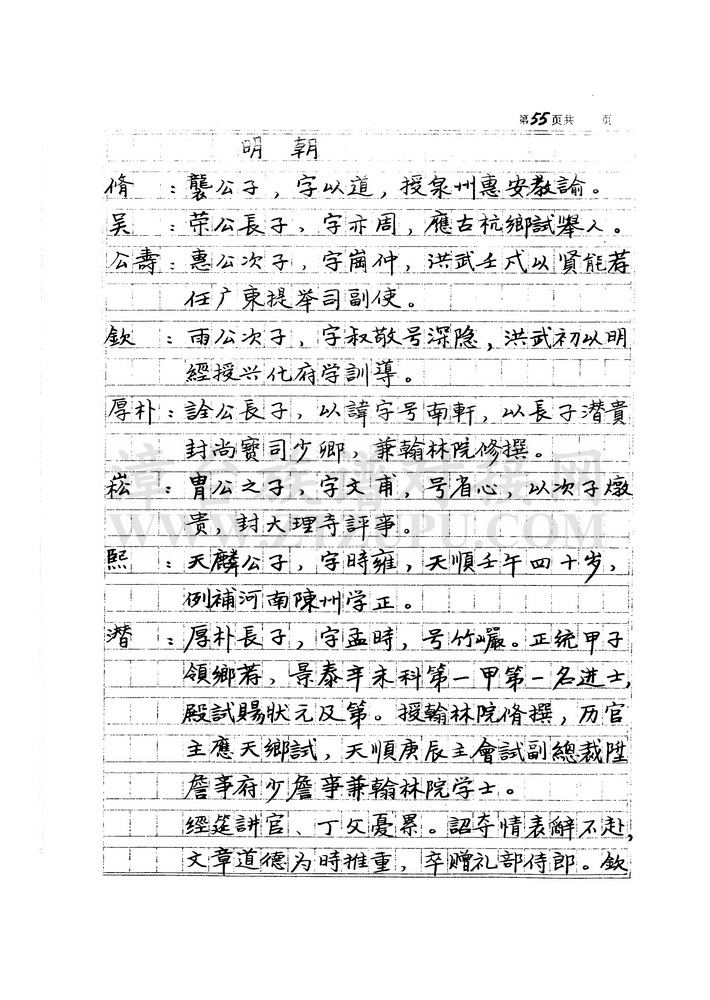 第55页共 页
明朝
脩：龑公子，字以道，授泉州惠安教諭。
吴：荣公長子，字亦周，應古杭鄉試舉人。
公壽：惠公次子，字崗仲，洪武壬戌以賢能荐
任广東提举司副使。
欽：雨公次子，字叔敬号深隐，洪武初以明
經授兴化府学訓導。
厚朴：詮公長子，以諱字号南軒，以長子潛貴
封尚寶司少卿，兼翰林院修撰。
崧：胄公之子，字文甫，号省心，以次子燉
貴，封大理寺評事。
熙：天麟公子，字時雍，天順壬午四十岁，
例補河南陳州学正。
潛：厚朴長子，字孟時，号竹巖。正统甲子
領鄉荐，景泰辛未科第一甲第一名进士，
殿試賜狀元及第。授翰林院脩撰，历官
主應天鄉試，天順庚辰主會試副總裁陞
詹事府少詹事兼翰林院学士。
經筵講官、丁父憂累。詔夺情表辭不赴，
文章道德为時推重，卒赠礼部侍郎。欽
漳台族譜对接网
WWW.ZTZUPU.COM